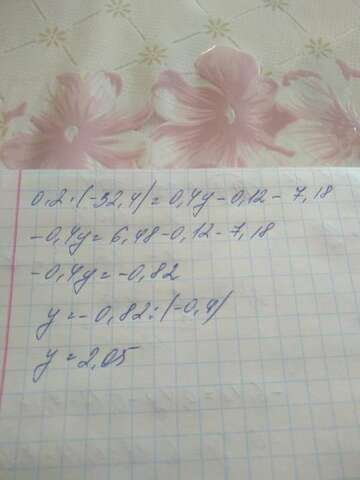 0,2·(-32,4)=0,4y-0,12-7,18
-0,4y=6,48-0,12-7,18
-0,4y=-0,82
y=-0,82:(-0,4)
y=2,05